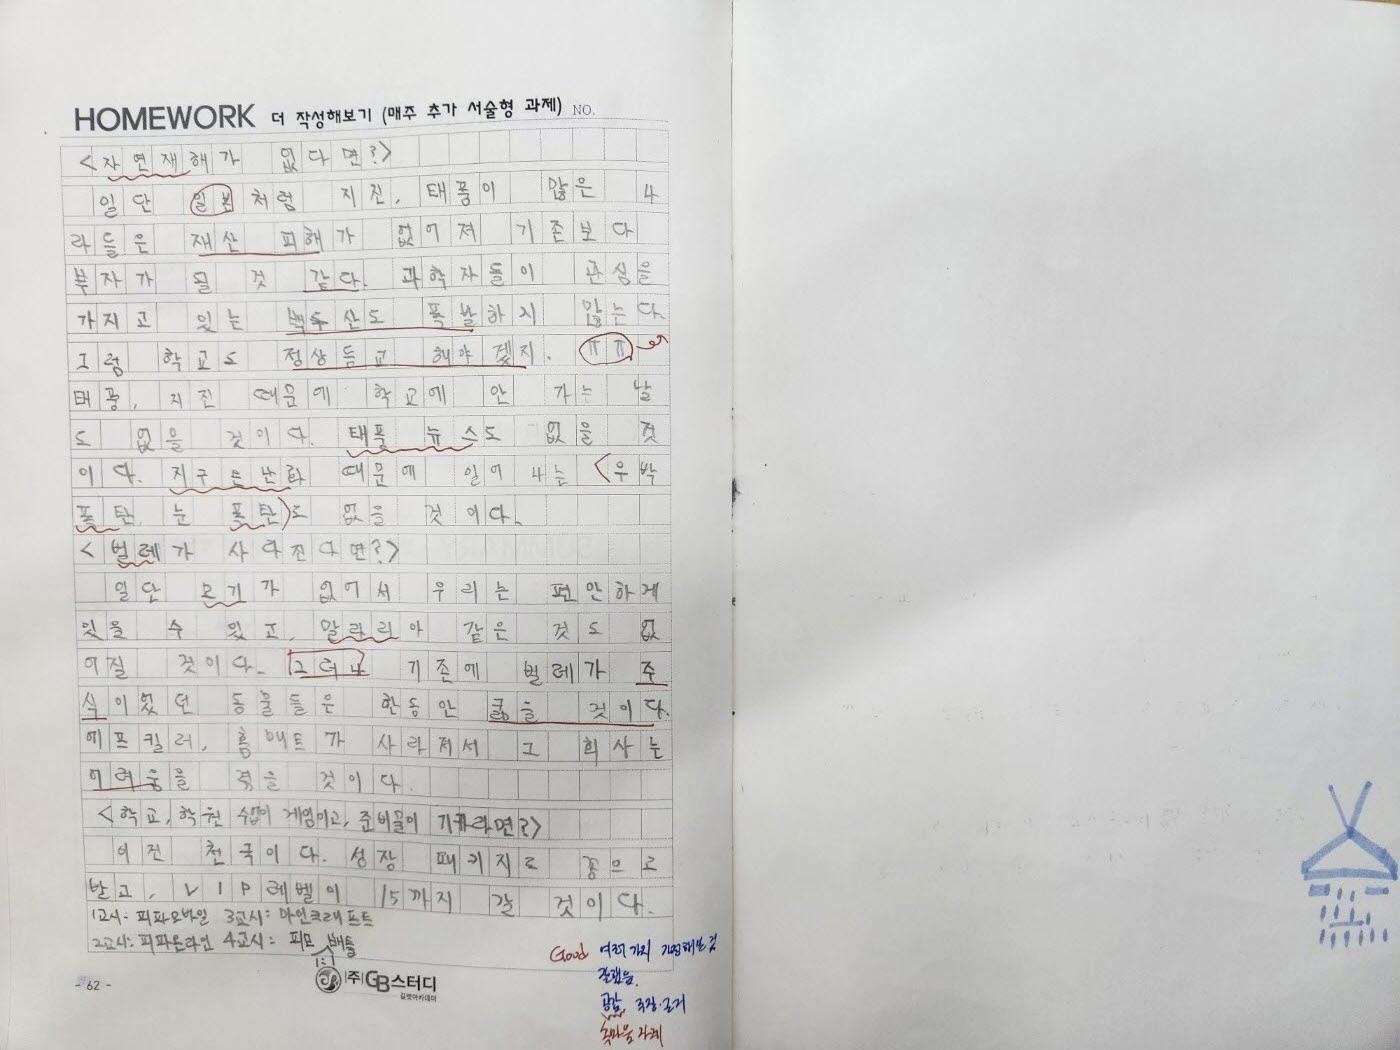 HOMEWORK 더 작성해보기 (매주 추가 서술형 과제) NO.
<자연재해가 없다면?>
일단 일본처럼 지진, 태풍이 많은 나
라들은 재산 피해가 없어져 기존보다
부자가 될 것 같다. 과학자들이 관심을
가지고 있는 백두산도 폭발하지 않는다.
그럼 학교도 정상등교 해야겠지. ㅠㅠ
태풍, 지진 때문에 학교에 안 가는 날
도 없을 것이다. 태풍 뉴스도 없을 것
이다. 지구온난화 때문에 일어나는 <우박
폭탄, 눈 폭탄>도 없을 것이다.
<벌레가 사라진다면?>
일단 모기가 없어서 우리는 편안하게
있을 수 있고, 말라리아 같은 것도 없
어질 것이다. 그러나 기존에 벌레가 주
식이었던 동물들은 한동안 굶을 것이다.
에프킬러, 홈매트가 사라져서 그 회사는
어려움을 겪을 것이다.
<학교, 학원 수업이 게임이고, 준비물이 기프라면?>
이건 천국이다. 성장 패키지로 꽁으로
받고, VIP레벨이 15까지 갈 것이다.
1교시: 피파모바일 3교시: 마인크래프트
2교시: 피파온라인 4교시: 피모 배틀
1:1
(주)GB스터디
길벗아카데미
- 62 -
Good 여러가지 가정해본 것
잘했음.
공감, 주장·근거